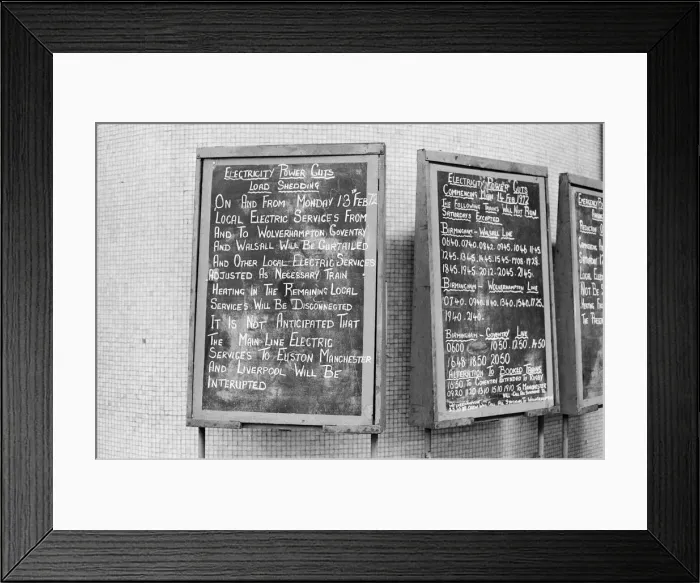 ELECTRICITY POWER CUTS
LOAD SHEDDING
ON AND FROM MONDAY 13TH FEB 72
LOCAL ELECTRIC SERVICES FROM
AND TO WOLVERHAMPTON, COVENTRY
AND WALSALL WILL BE CURTAILED
AND OTHER LOCAL ELECTRIC SERVICES
ADJUSTED AS NECESSARY TRAIN
HEATING IN THE REMAINING LOCAL
SERVICES WILL BE DISCONNECTED
IT IS NOT ANTICIPATED THAT
THE MAIN LINE ELECTRIC
SERVICES TO EUSTON MANCHESTER
AND LIVERPOOL WILL BE
INTERUPTED
ELECTRICITY POWER CUTS
COMMENCING MON 14 FEB 1972
THE FOLLOWING TRAINS WILL NOT RUN
SATURDAYS EXCEPTED
BIRMINGHAM - WALSALL LINE
0640. 0740. 0842. 0945. 1045. 1145
1245. 1345. 1445. 1545. 1708. 1728.
1845. 1945. 2012. 2045. 2145.
BIRMINGHAM - WOLVERHAMPTON LINE
0740. 0940. 1340. 1540. 1725.
1940. 2140.
BIRMINGHAM - COVENTRY LINE
0600 1050. 1250. 1450
1648 1850 2050
ALTERATION TO BOOKED TRAINS
1650 TO COVENTRY EXTENDED TO RUGBY
0920 1120 1310 1510 1910 TO MANCHESTER
EMERGENCY